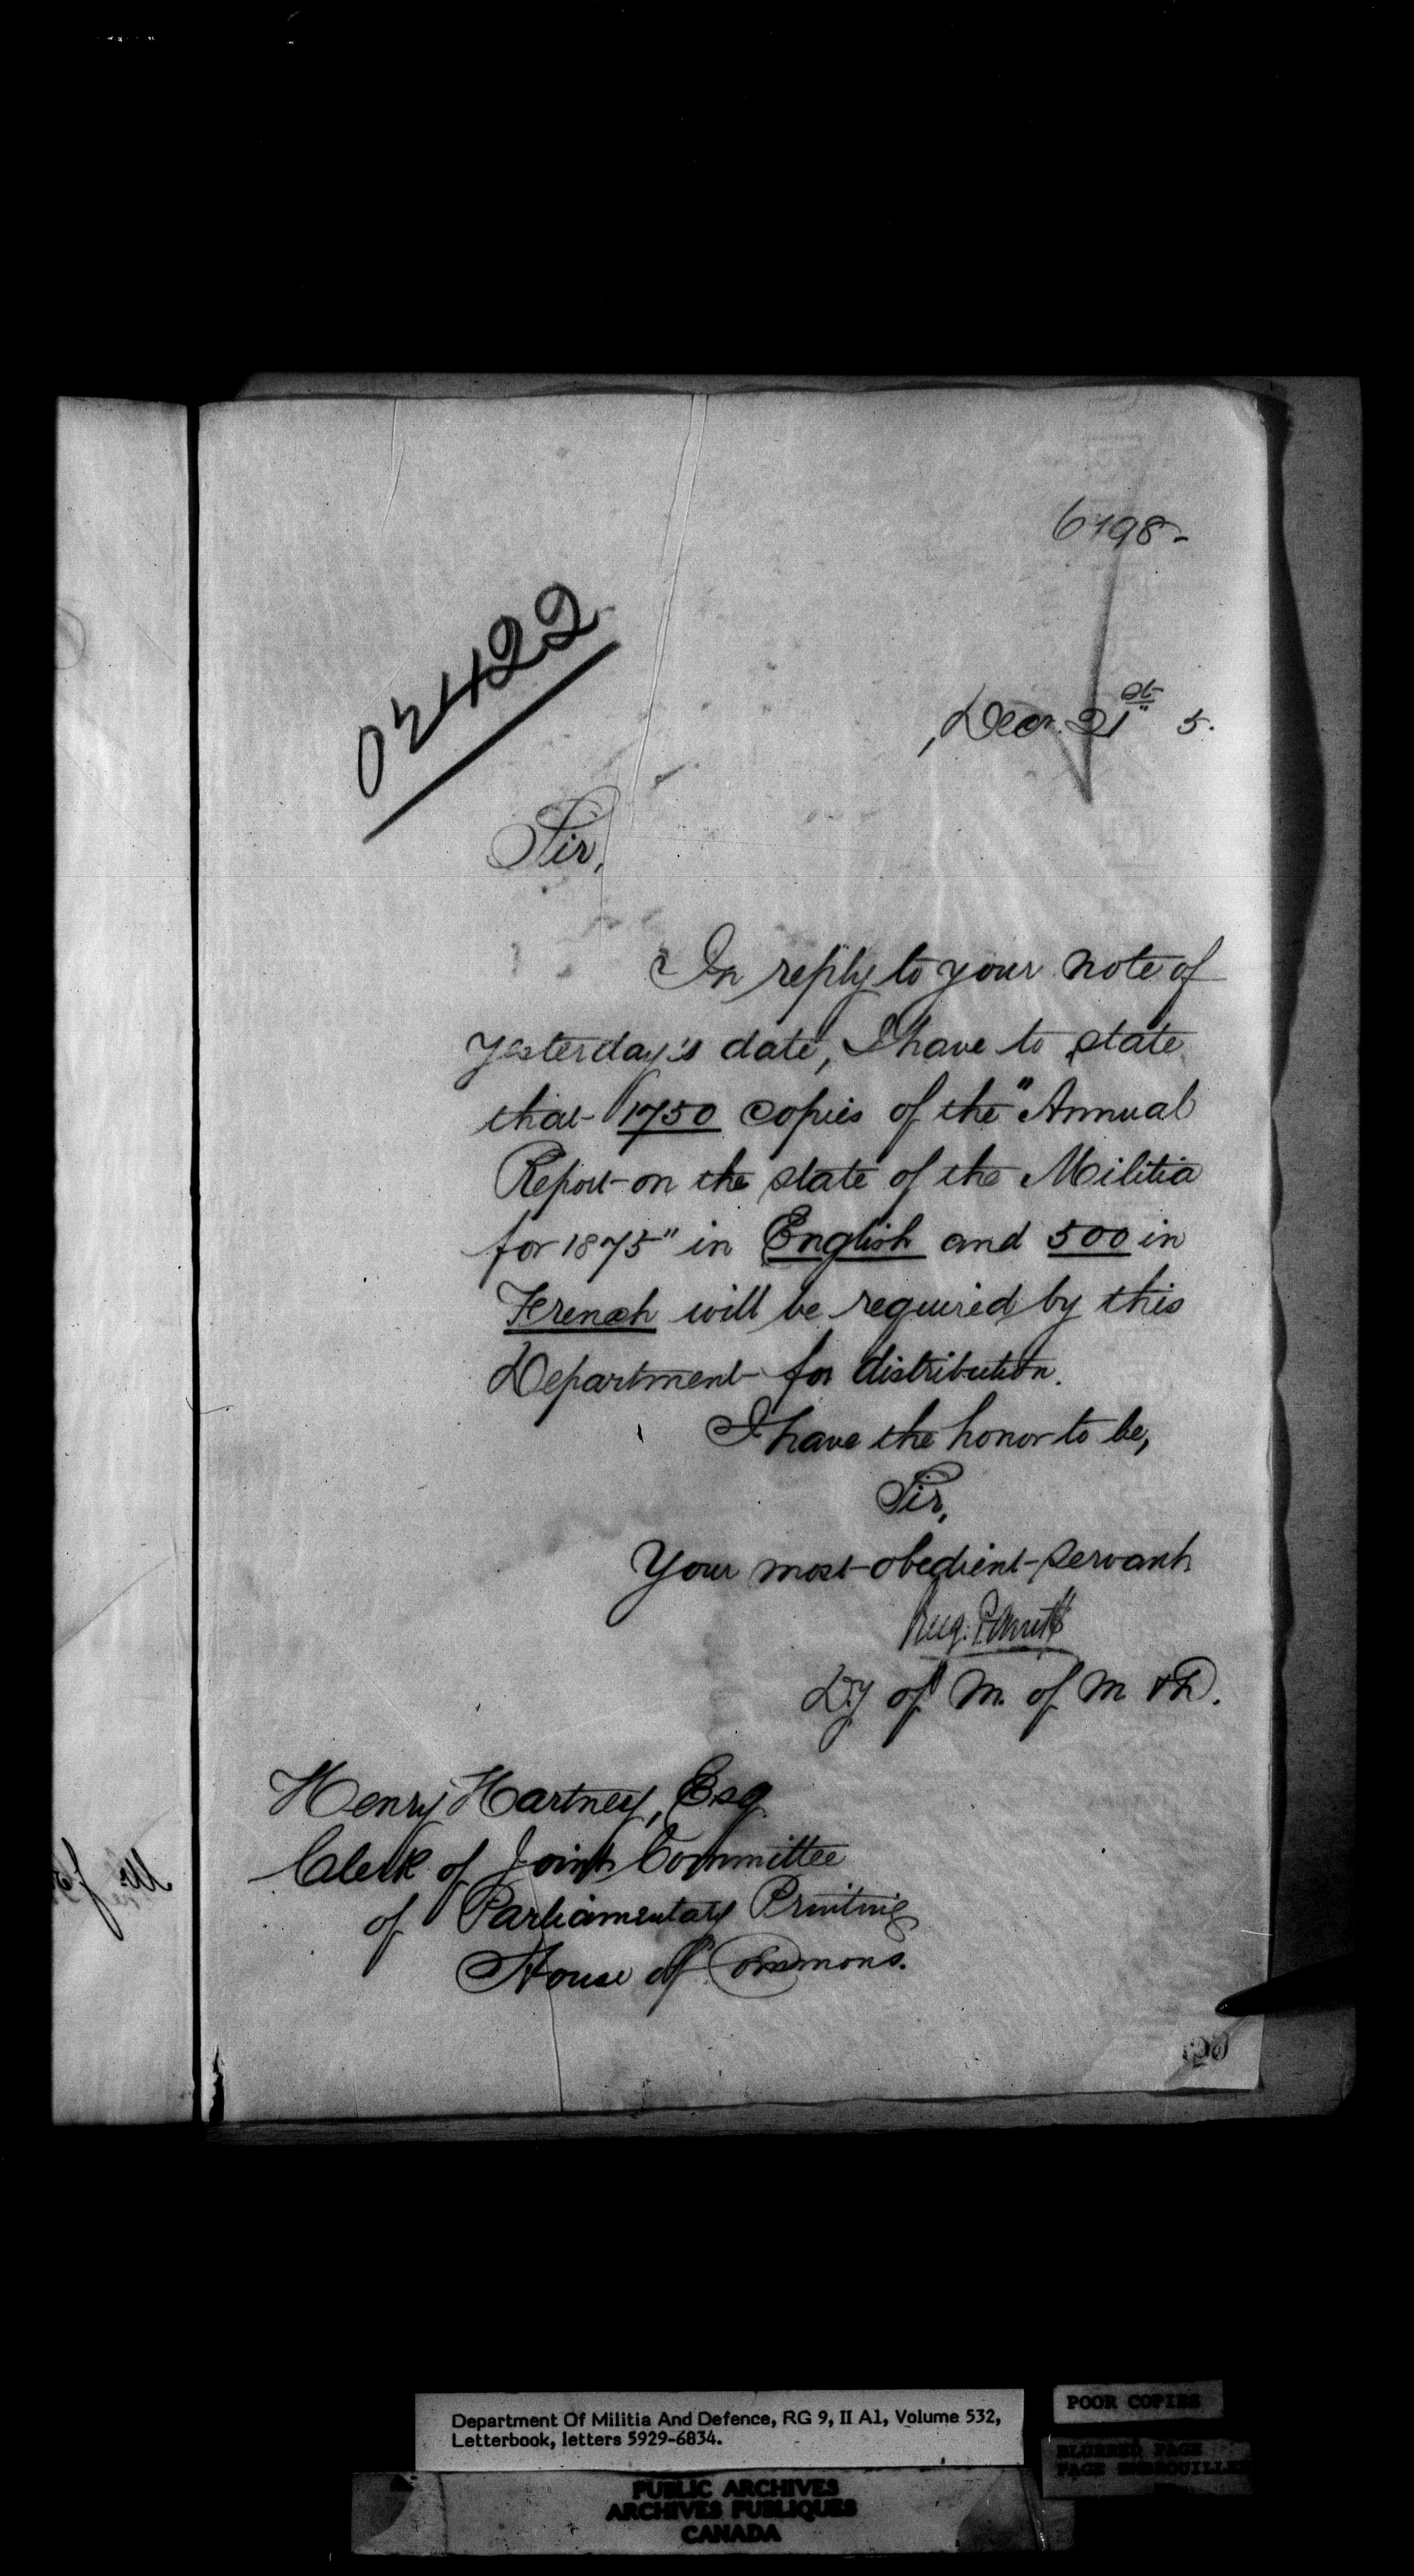 6198-
02422
Decr. 21st 5.
Sir,
In reply to your note of
yesterday's date, I have to state
that 1750 copies of the "Annual
Report on the state of the Militia
for 1875" in English and 500 in
French will be required by this
Department for distribution.
I have the honor to be,
Sir,
Your most obedient servant
Dy of M. of M & D.
Henry Hartney, Esq
Clerk of Joint Committee
of Parliamentary Printing
House of Commons.
Department Of Militia And Defence, RG 9, II A1, Volume 532,
Letterbook, letters 5929-6834.
POOR COPIES
BLURRED PAGE
PAGE EMBROUILLEE
PUBLIC ARCHIVES
ARCHIVES PUBLIQUES
CANADA